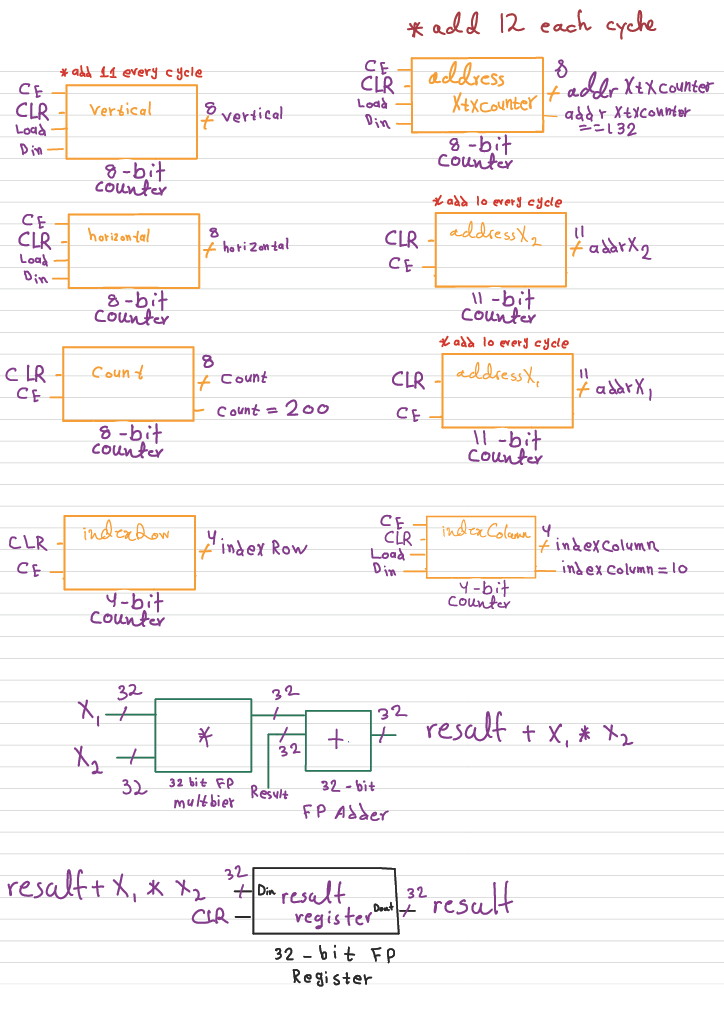 * add 12 each cycle
* add 11 every cycle
CE
CLR
Load
Din
vertical
8
vertical
8-bit
counter
CE
CLR
Load
Din
address
XtXcounter
8
addr XtXcounter
addr XtXcounter
==132
8-bit
counter
CE
CLR
Load
Din
horizontal
8
horizontal
8-bit
counter
* add 10 every cycle
CLR
CE
addressX2
11
addrX2
11-bit
counter
CLR
CE
Count
8
Count
Count = 200
8-bit
counter
* add 10 every cycle
CLR
CE
addressX1
11
addrX1
11-bit
counter
CLR
CE
indexRow
4
index Row
4-bit
counter
CE
CLR
Load
Din
indexColumn
4
indexColumn
indexColumn=10
4-bit
counter
X1
32
X2
32
*
32 bit FP
multbier
32
32
Result
+
32
32-bit
FP Adder
resalt + X1 * X2
resalt + X1 * X2
32
Din
CLR
resalt
register
Dout
32
resalt
32-bit FP
Register